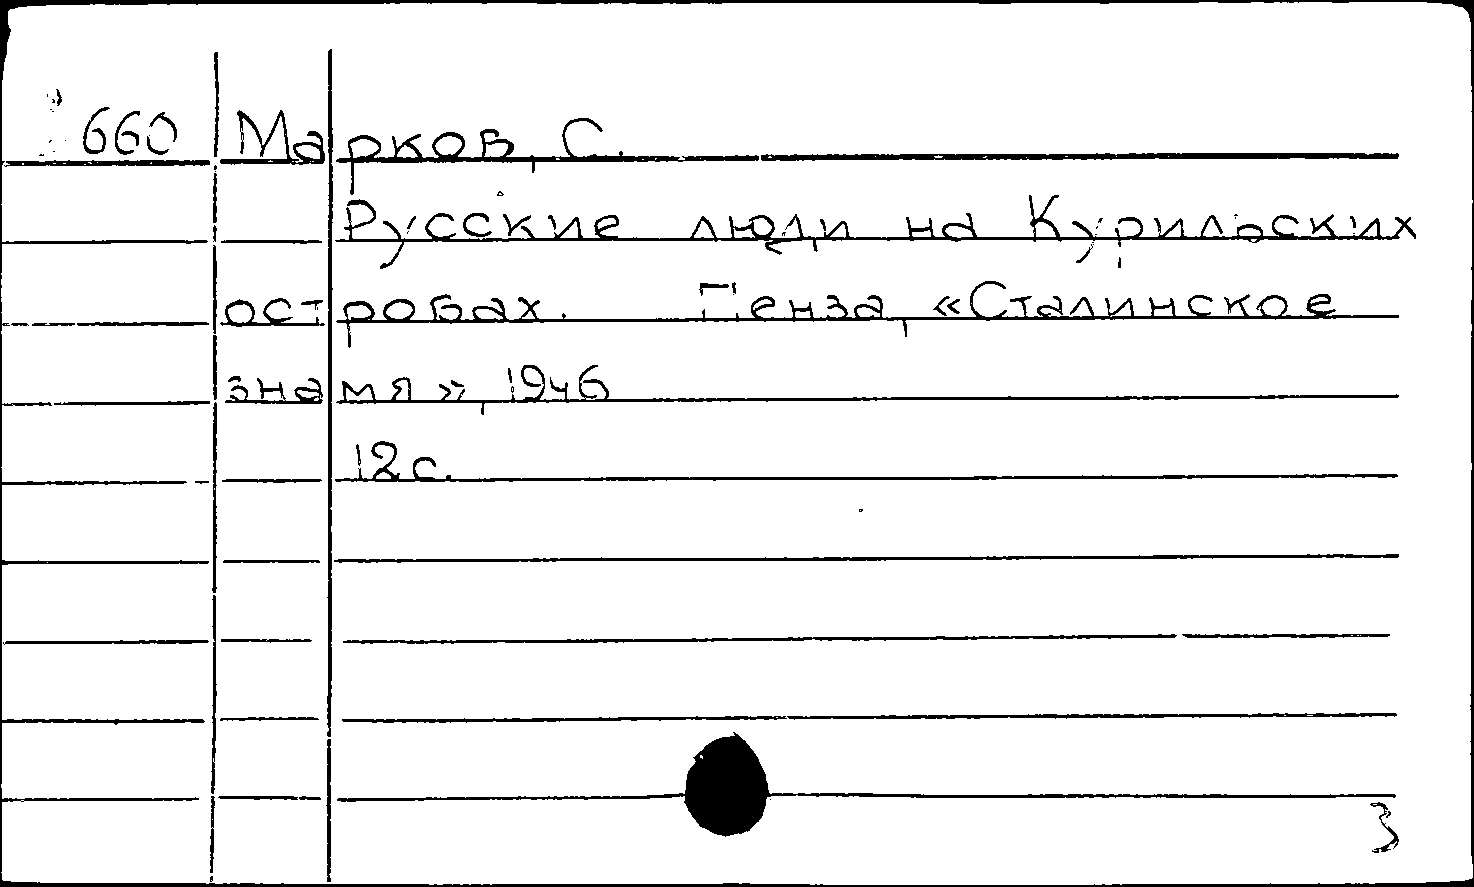 660 Марков, С.
Русские люди на Курильских
островах. Пенза, «Сталинское
знамя», 1946
12 с.
3